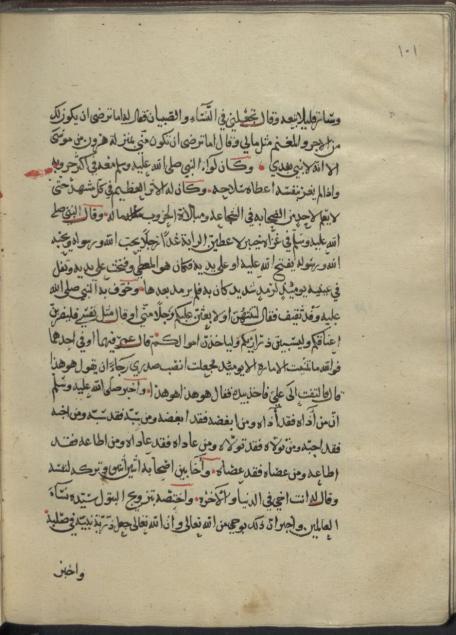 ١٠١
وسار قليلا تبعه وقال تخلفني في النساء والصبيان فقال له اما ترضى ان يكون لك
من الاجر والمغنم مثل مالي وقال اما ترضى ان تكون مني بمنزلة هرون من موسى
الا انه لا نبي بعدي وكان لواء النبي صلى الله عليه وسلم معه في اكثر حروبه
واذا لم يغز بنفسه اعطاه سلاحه وكان له الاثر العظيم في كل مشهد حتى
لا يعلم لاحد من الصحابة في الشجاعة ومبالاة الحروب ماله وقال النبي صلى
الله عليه وسلم في غزاة خيبر لاعطين الراية غدا رجلا يحب الله ورسوله ويحبه
الله ورسوله يفتح الله عليه او على يديه فكان هو المعطى وفتحت على يديه وتفل
في عينيه يومئذ لرمد شديد كان به فلم يرمد بعدها وخوف به النبي صلى الله
عليه وسلم وفد ثقيف فقال لتنتهن او لابعثن عليكم رجلا مني او قال مثل نفسي فليضربن
اعناقكم وليسبين ذراريكم ولياخذن اموالكم قال عمر فيها او في احدها
فوالله ما تمنيت الامارة الا يومئذ فجعلت انصب صدري رجاء ان يقول هو هذا
قال فالتفت الى علي فاخذ بيده فقال هو هذا هو هذا واخبر صلى الله عليه وسلم
ان من آذاه فقد آذاه ومن ابغضه فقد ابغضه ومن سبه فقد سبه ومن احبه
فقد احبه ومن تولاه فقد تولاه ومن عاداه فقد عاداه ومن اطاعه فقد
اطاعه ومن عصاه فقد عصاه وآخا بين اصحابه اثنين اثنين وتركه لنفسه
وقال له انت اخي في الدنيا والآخرة واختصه بتزويج البتول سيدة نساء
العالمين واخبر ان ذلك بوحي من الله تعالى وان الله تعالى جعل ذرية نبيه في صلبه
واخبر